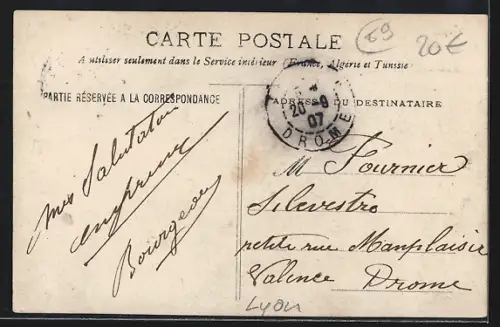 CARTE POSTALE
69
20€
A utiliser seulement dans le Service intérieur (France, Algérie et Tunisie
PARTIE RÉSERVÉE A LA CORRESPONDANCE
ADRESSE DU DESTINATAIRE
20 -9
07
DROME
Mes Salutations
Bourgeon
M Fournier
Silvestro
petite rue Manplaisir
Valence Drome
Lyon